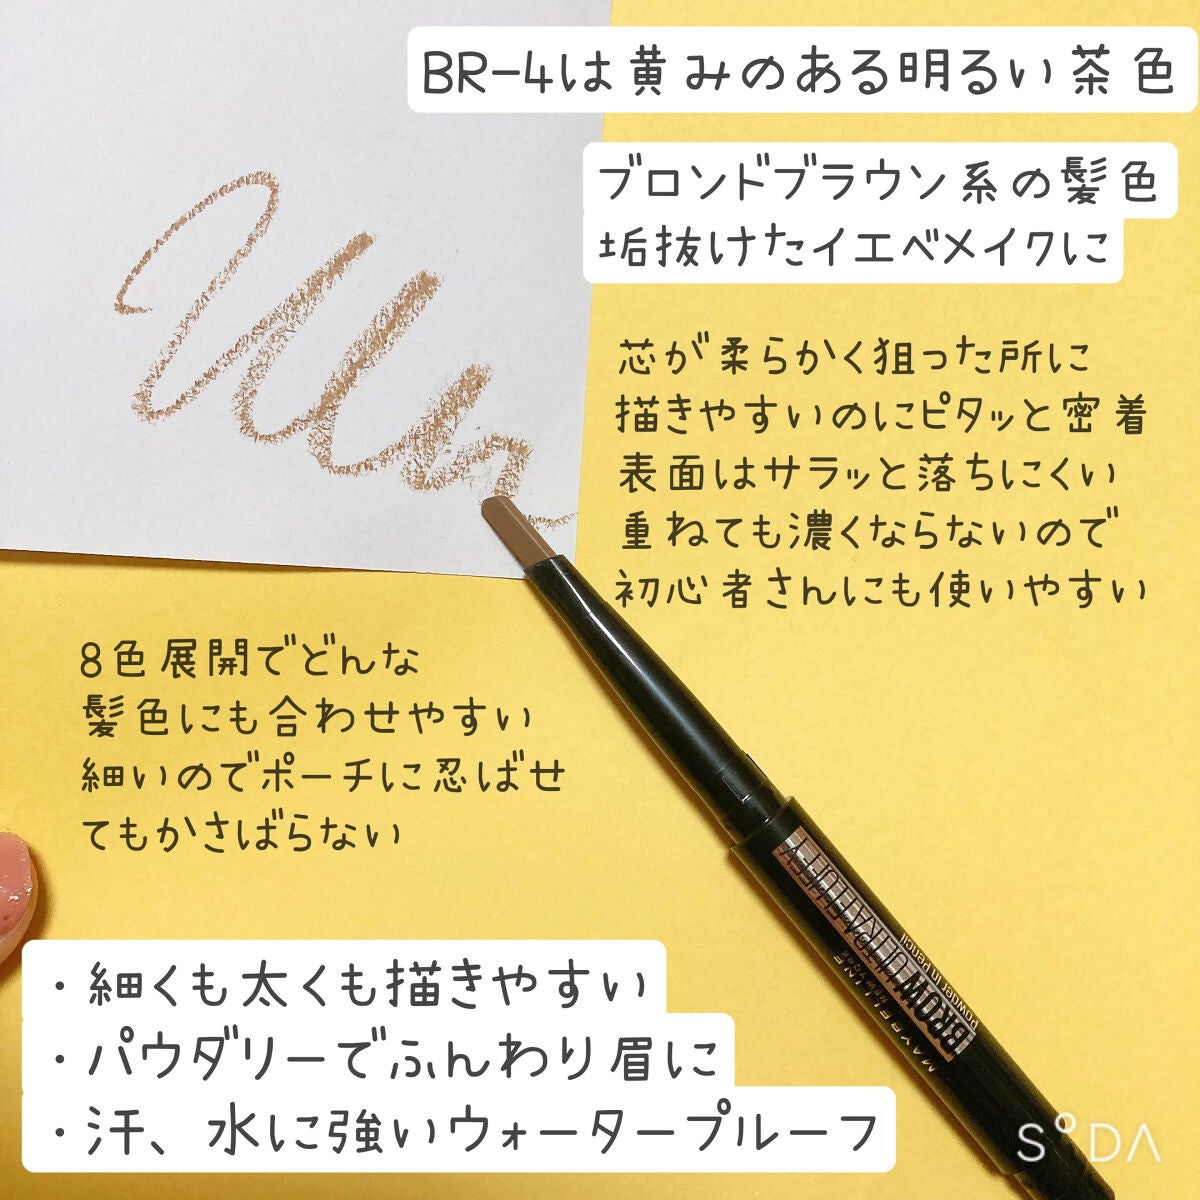 BR-4は黄みのある明るい茶色
ブロンドブラウン系の髪色
垢抜けたイエベメイクに
芯が柔らかく狙った所に
描きやすいのにピタッと密着
表面はサラッと落ちにくい
重ねても濃くならないので
初心者さんにも使いやすい
8色展開でどんな
髪色にも合わせやすい
細いのでポーチに忍ばせ
てもかさばらない
・細くも太くも描きやすい
・パウダリーでふんわり眉に
・汗、水に強いウォータープルーフ
MAYBELLINE
NEW YORK
BROW ULTRA FLUFFY
Powder In Pencil
SODA